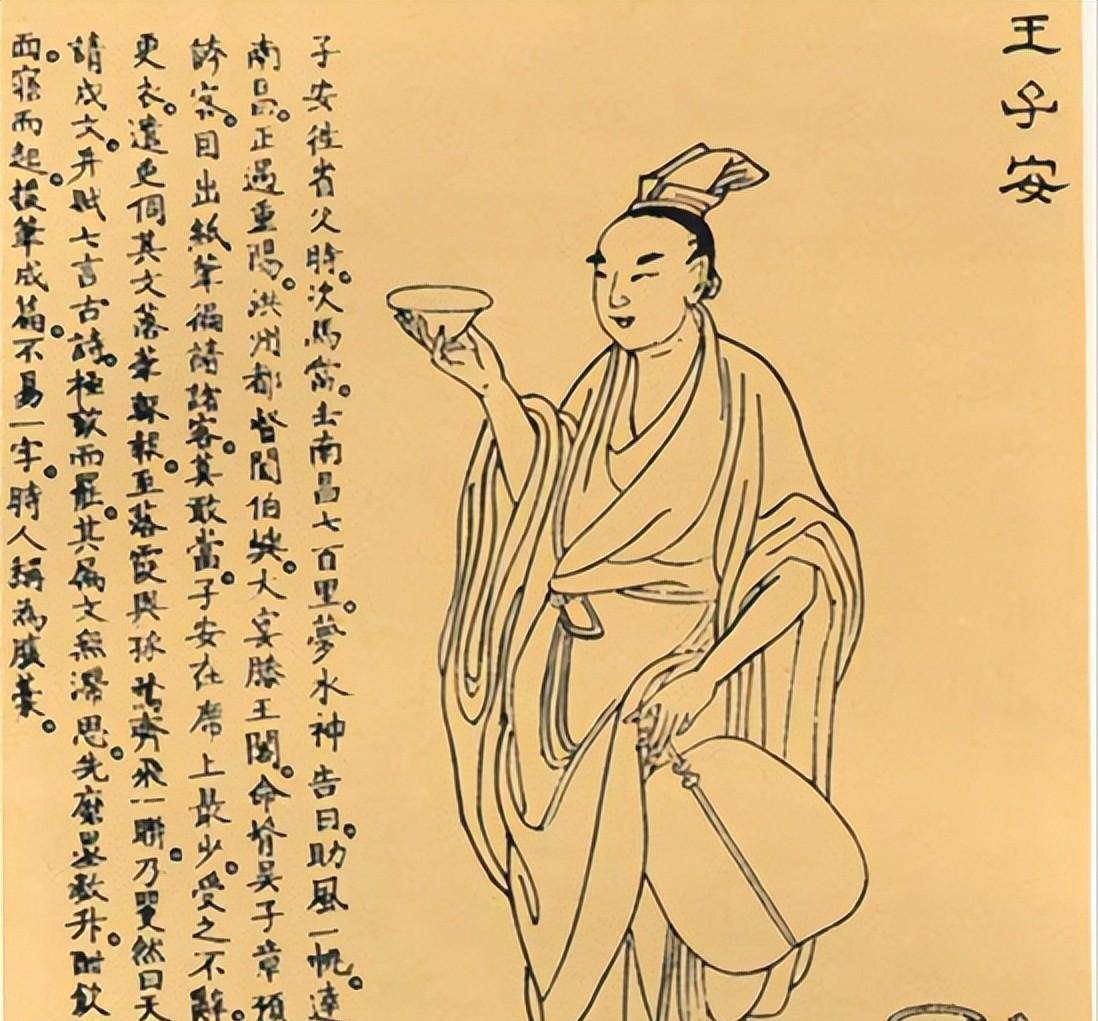 王子安
子安徃省父時。次馬當。去南昌七百里。夢水神告曰。助風一帆。達
南昌。正遇重陽。洪州都督閻伯嶼。大宴滕王閣。命壻吳子章預
誇客。因出紙筆徧請諸客。莫敢當。子安在席上最少。受之不辭。
更衣。遣吏伺其文落筆輒報。至落霞與孤鶩齊飛一聯。乃矍然曰天
請成文。并賦七言古詩。極歡而罷。其屬文無滯思。先磨墨數升。酣飲
面。寤而起。援筆成篇。不易一字。時人稱為腹藁。